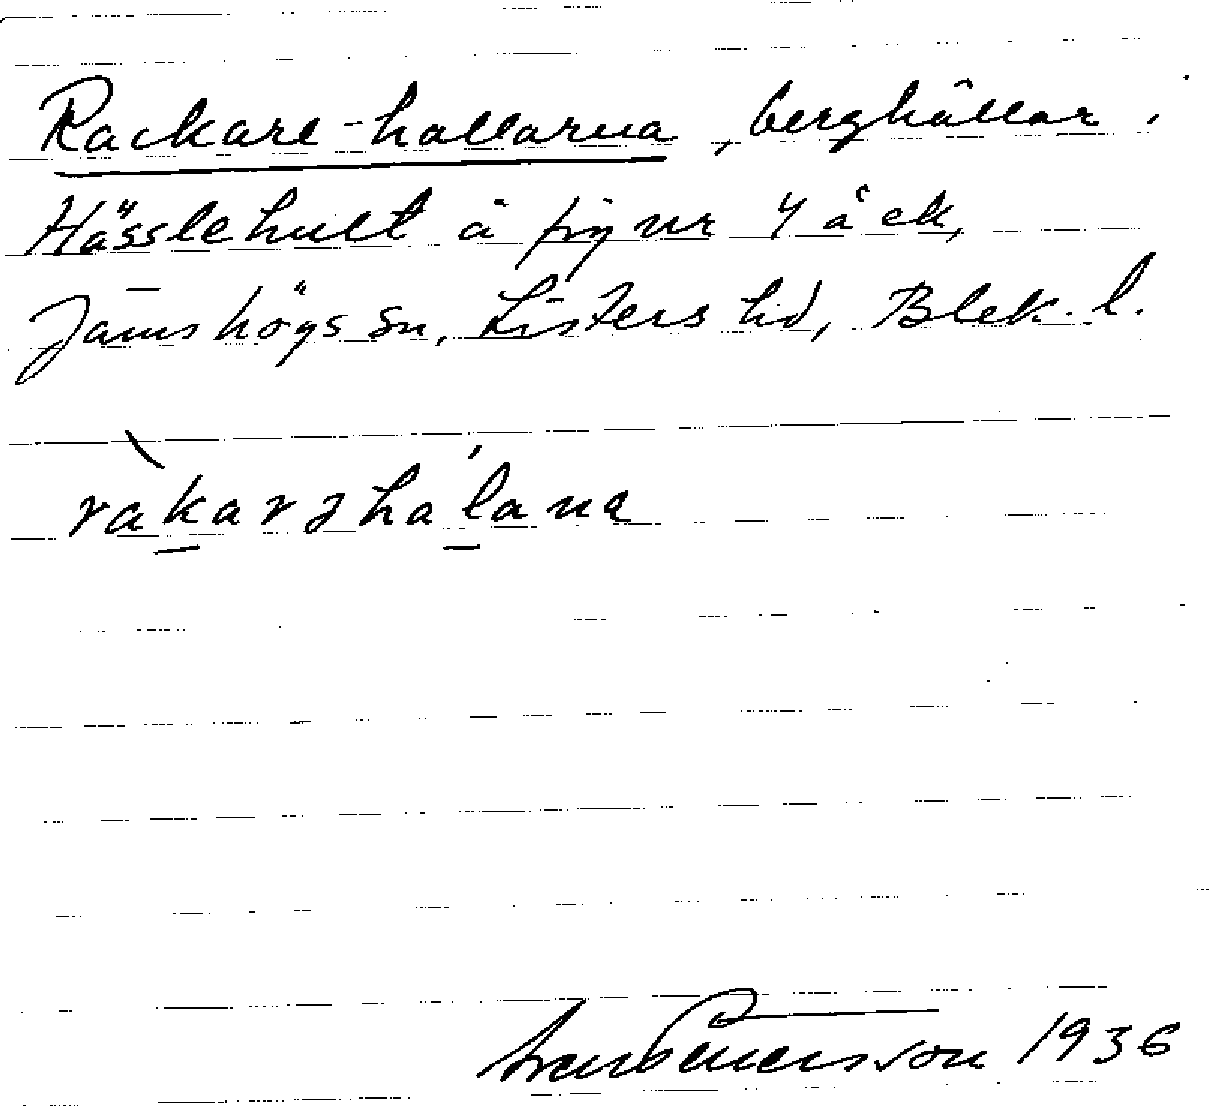 Rackare-hallarna, berghällar i
Hässlehult å fig nr 4 å ek,
Jämshögs sn, Listers hd, Blek. l.
ràkarəhálana
1936